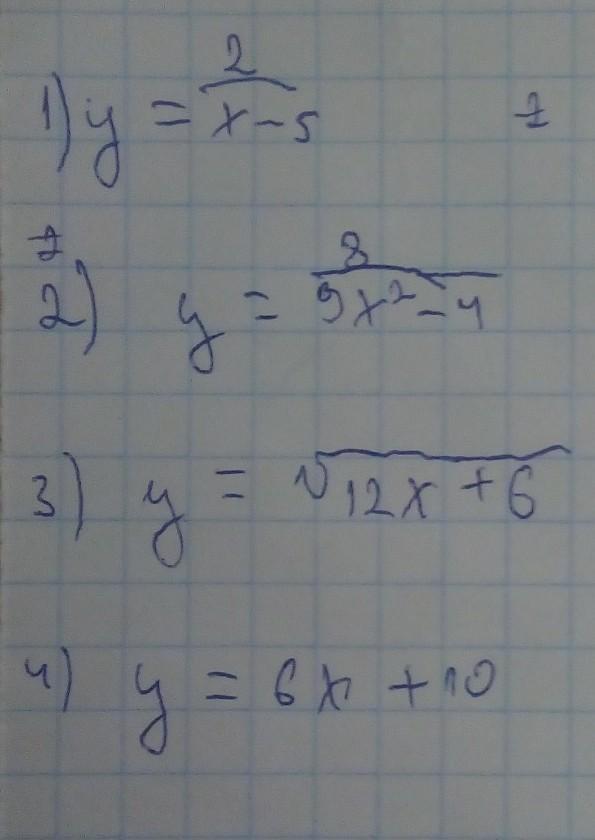 1) y = 2/(x-5)
2) y = 8/(9x²-4)
3) y = √(12x+6)
4) y = 6x+10